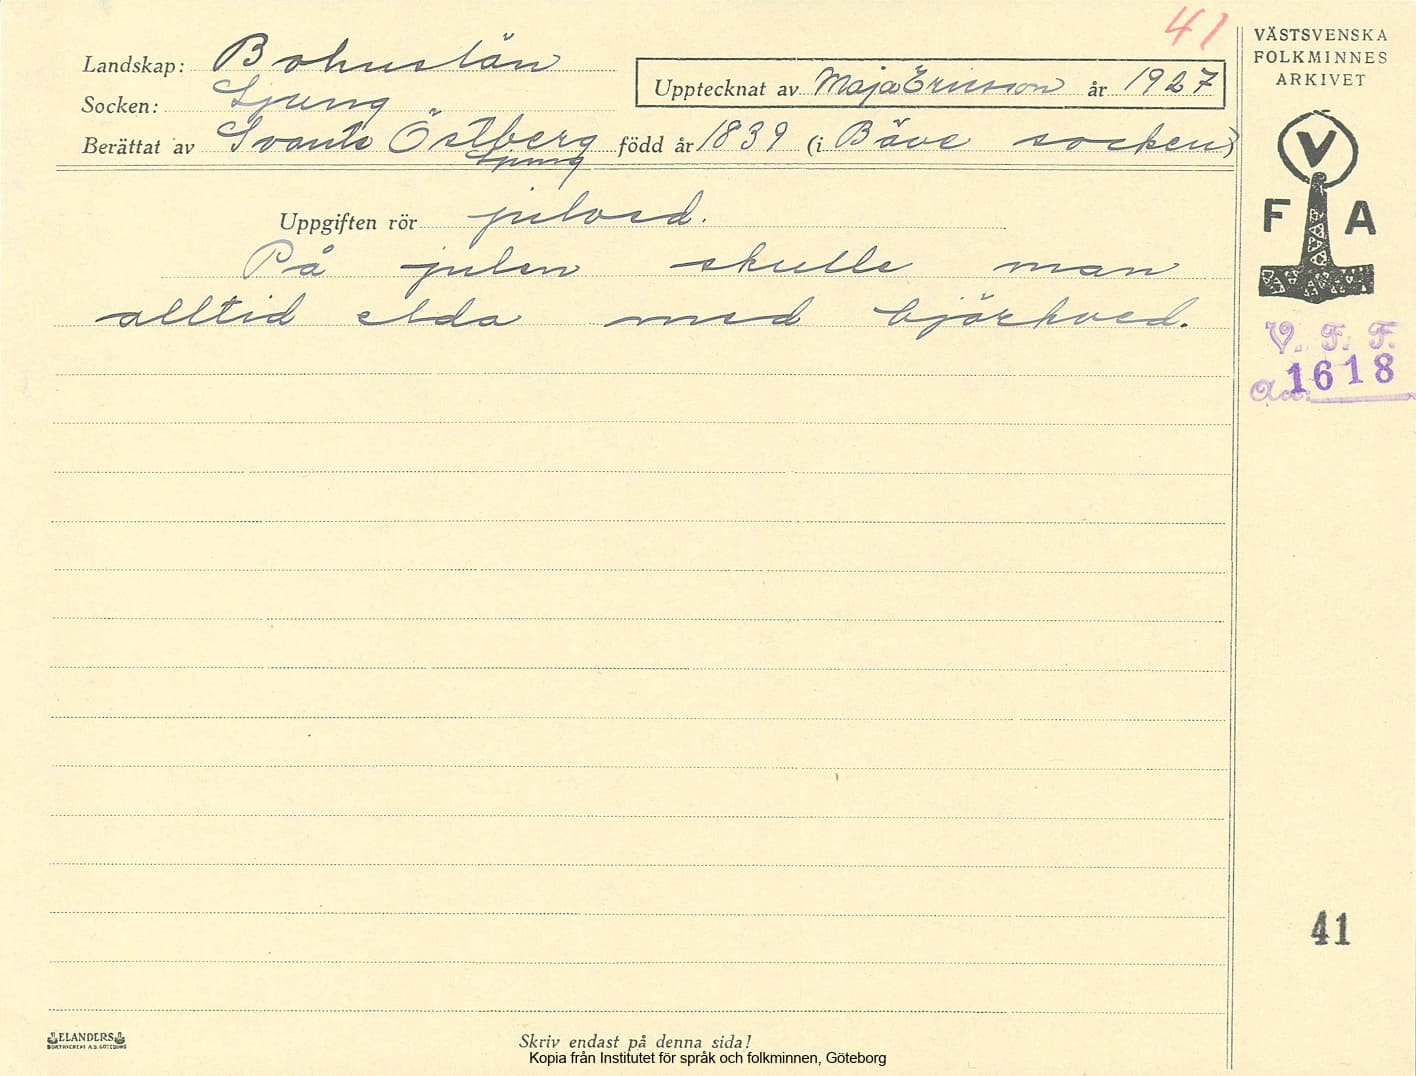 41
Landskap: Bohuslän
Socken: Ljung
Upptecknat av Maja Ericsson år 1927
Berättat av Svante Östberg född år 1839 (i Bäve socken)
Ljung
Uppgiften rör julved.
På julen skulle man
alltid elda med björkved.
VÄSTSVENSKA
FOLKMINNES
ARKIVET
V
F A
V. F. F.
1618
Acc.
41
ELANDERS
BOKTRYCKERI A.B. GÖTEBORG
Skriv endast på denna sida!
Kopia från Institutet för språk och folkminnen, Göteborg